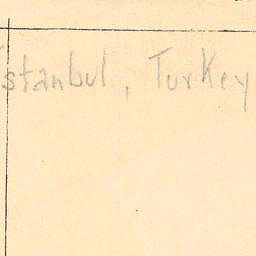 Istanbul, Turkey